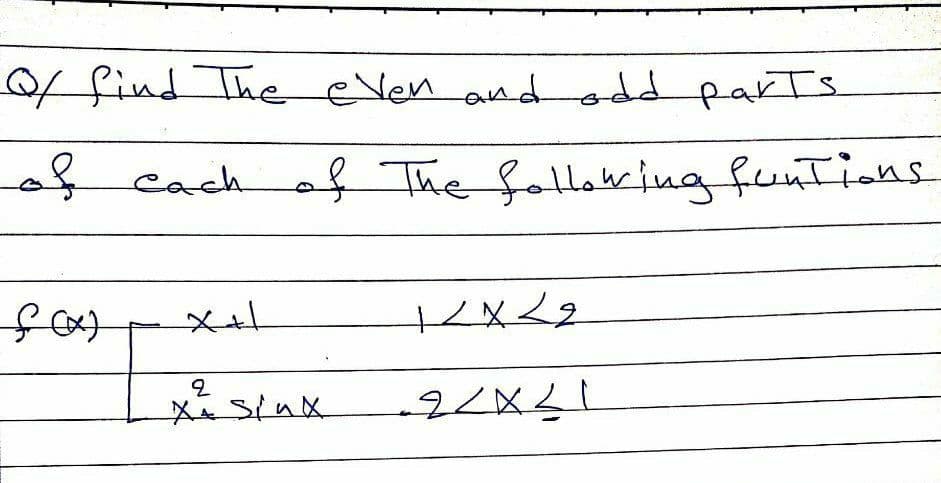 Q/ find The even and odd parts
of each of The following funTions
f(x) x+1 1<x<2
x² sinx -2<x≤1